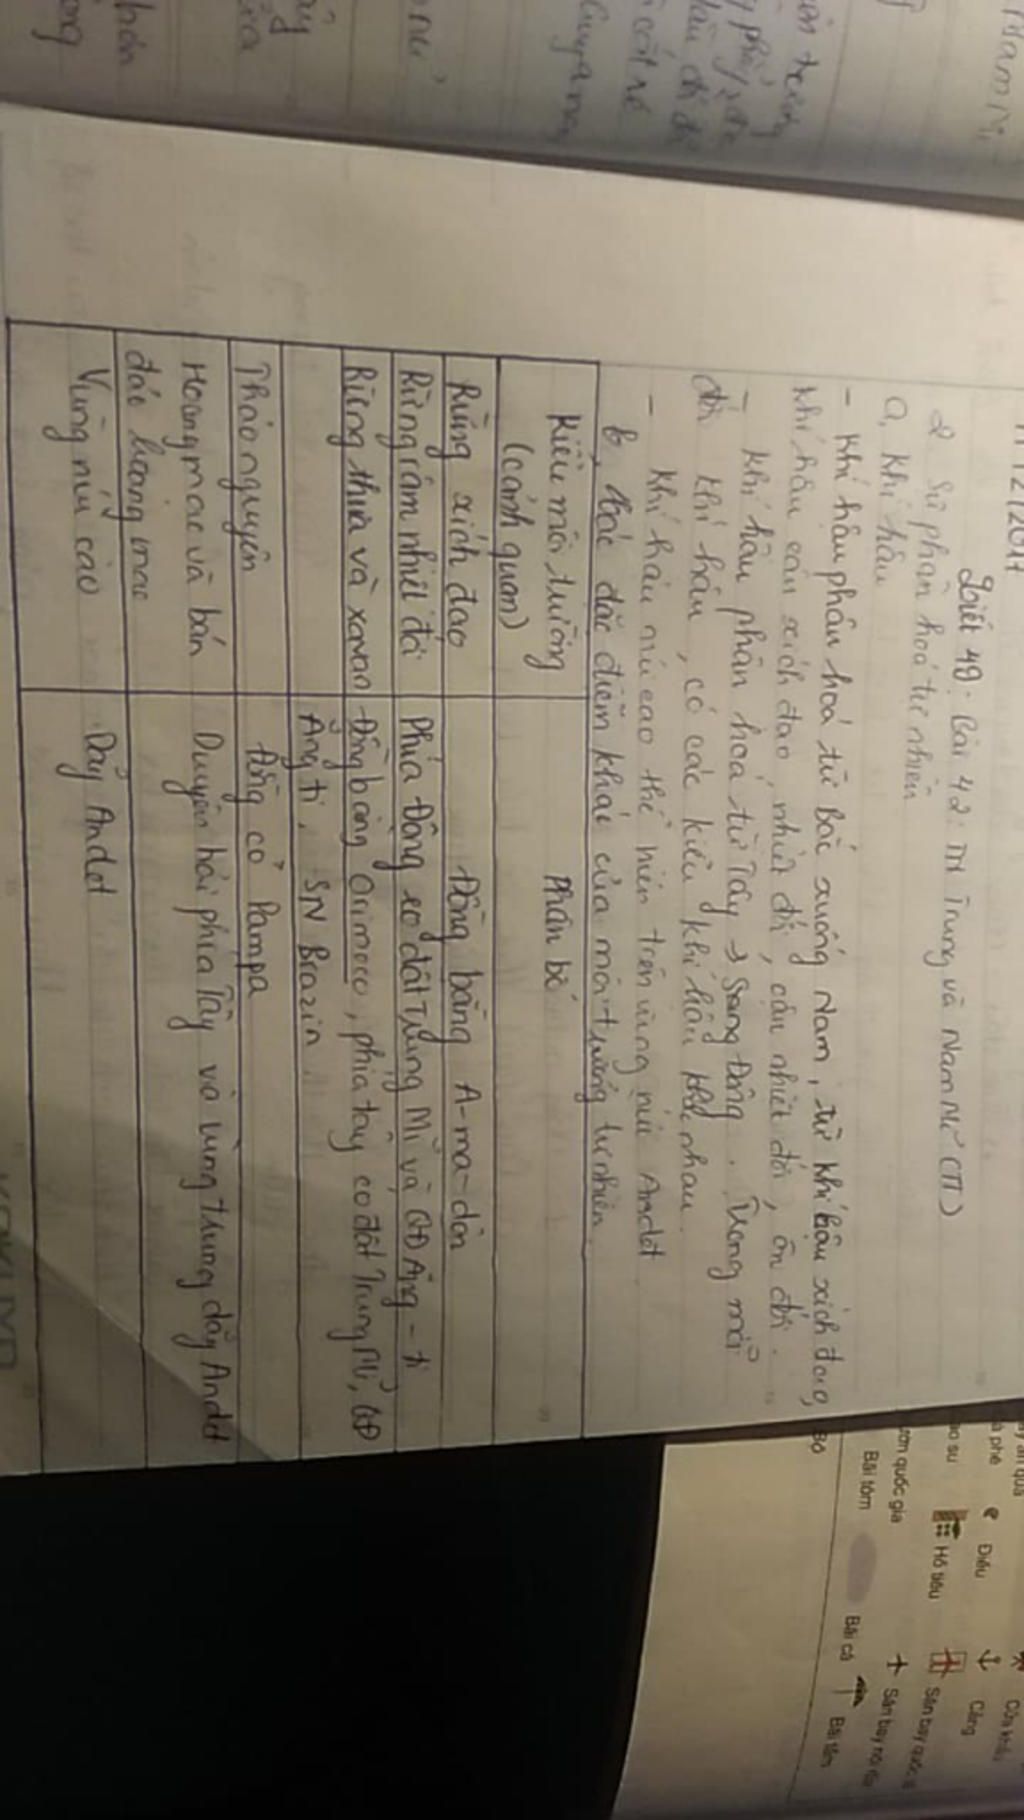 Tiết 48. Bài 42: TN Trung và Nam Mĩ (TT)
2. Sự phân hoá tự nhiên
a, Khí hậu
- Khí hậu phân hoá từ Bắc xuống Nam, từ khí hậu xích đạo,
khí hậu cận xích đạo, nhiệt đới, cận nhiệt đới, ôn đới.
- Khí hậu phân hoá từ Tây → Sang Đông. Trong mỗi
đới khí hậu, có các kiểu khí hậu khác nhau.
- Khí hậu núi cao thể hiện trên vùng núi Andet
b, Các đặc điểm khác của môi trường tự nhiên.
Kiểu môi trường Phân bố
(cảnh quan)
Rừng xích đạo Đồng bằng A-ma-dôn
Rừng rậm nhiệt đới Phía Đông eo đất Trung Mĩ và QĐ Ăng-ti
Rừng thưa và xavan Đồng bằng Orinoco, phía tây eo đất Trung Mĩ, QĐ
Ăng ti, SN Brazin
Thảo nguyên Đồng cỏ Pampa
Hoang mạc và bán Duyên hải phía Tây và vùng trung dãy Andet
đảo hoang mạc
Vùng núi cao Dãy Andet
Điều
Cảng
Hồ tiêu
Sân bay quốc tế
Sân bay nội địa
Bãi tôm
Bãi cá
Bãi tắm